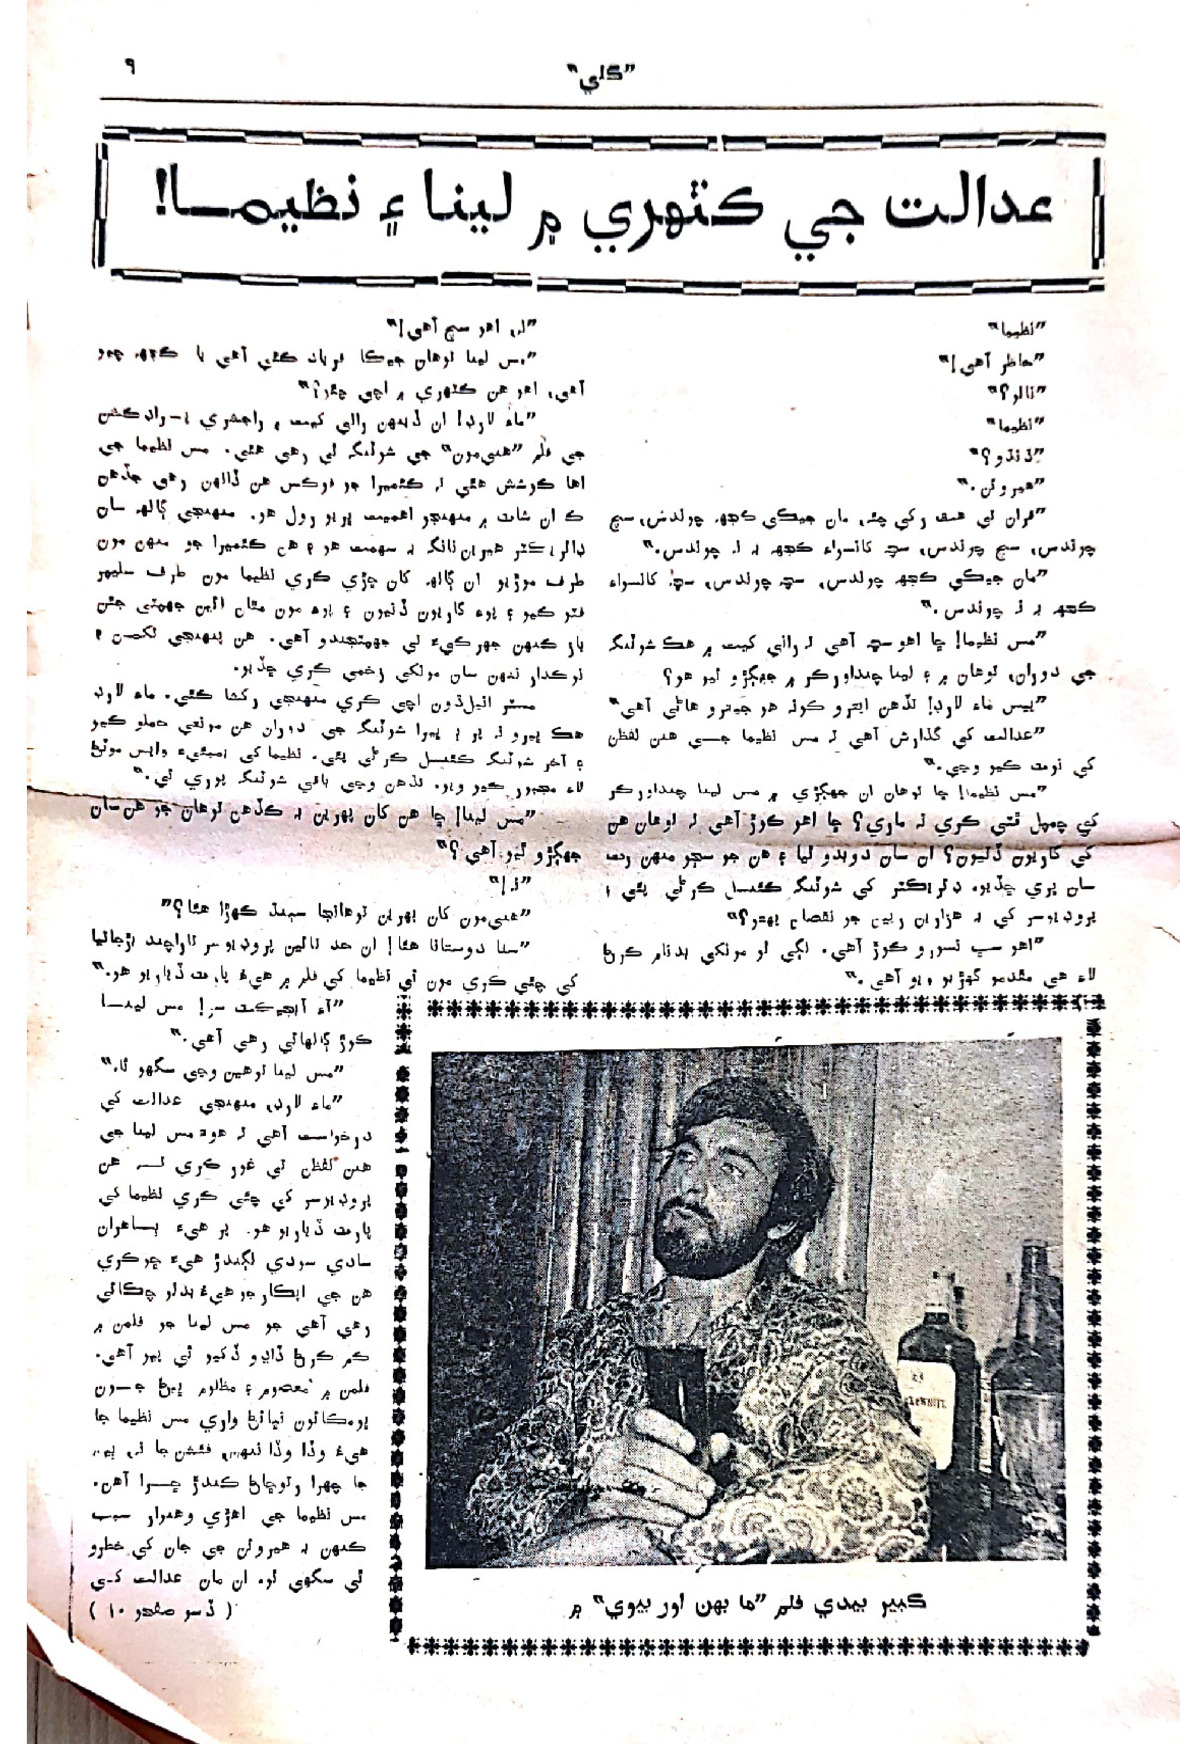 "ڪلي"
٩
عدالت جي ڪٽهري ۾ لينا ۽ نظيما!
"نظيما"
"حاظر آهي!"
"نالو؟"
"نظيما"
"ڌنڌو؟"
"هيروئن."
"قران تي هٿ رکي چئي، مان جيڪي ڪجهہ چوندس، سچ
چوندس، سچ چوندس، سچ کانسواءِ ڪجهہ بہ نہ چوندس."
"مان جيڪي ڪجهہ چوندس، سچ چوندس، سچ کانسواءِ
ڪجهہ بہ نہ چوندس."
"مس نظيما! ڇا اهو سچ آهي تہ راني کيت ۾ هڪ شوٽنگ
جي دوران، توهان ۾ ۽ لينا چنداورڪر ۾ جهڳڙو ٿيو هو؟
"ييس ماءِ لارڊ! تڏهن ايترو ڪونہ هو جيترو هاڻي آهي"
"عدالت کي گذارش آهي تہ مس نظيما جي هنن لفظن
کي نوٽ ڪيو وڃي."
"مس نظيما! ڇا توهان ان جهڳڙي ۾ مس لينا چنداورڪر
کي چمپل ڦٽي ڪري نہ ماري؟ ڇا اهو ڪوڙ آهي تہ توهان هن
کي گاريون ڏنيون؟ ان سان دوبدو ٿيا ۽ هن جو سڄو منهن رت
سان ڀري ڇڏيو. ڊئريڪٽر کي شوٽنگ ڪئنسل ڪرڻي پئي ۽
پروڊيوسر کي بہ هزارين رپين جو نقصان پهتو؟"
"اهو سڀ تسورو ڪوڙ آهي. لڳي ٿو مونکي بدنام ڪرڻ
لاءِ هي مقدمو گهڙيو ويو آهي."
"نہ، اهو سچ آهي!"
"مس لينا توهان جيڪا فرياد ڪئي آهي يا ڪجهہ چيو
آهي، اهو هن ڪٽهري ۾ اچي چئو؟"
"ماءِ لارڊ! ان ڏينهن راني کيت ۾ راجشري پراڊڪشن
جي فلم "هني‌مون" جي شوٽنگ ٿي رهي هئي. مس نظيما جي
اها ڪوشش هئي تہ ڪئميرا جو فوڪس هن ڏانهن رهي جڏهن
ڪ ان شاٽ ۾ منهنجو اهميت ڀريو رول هو. منهنجي ڳالهہ سان
ڊائريڪٽر هيرين ناگ بہ سهمت هو ۽ هن ڪئميرا جو منهن مون
طرف موڙيو ان ڳالهہ کان چڙي ڪري نظيما مون طرف سليپر
ڦٽو ڪيو ۽ پوءِ گاريون ڏنيون ۽ پوءِ مون مٿان ائين جهپٽي جئن
باز ڪنهن جهرڪيءَ تي جهپٽيندو آهي. هن پنهنجي تکن ۽
نوڪدار ننهن سان مونکي زخمي ڪري ڇڏيو.
مسٽر انيل‌ڌون اچي ڪري منهنجي رکشا ڪئي. ماءِ لارڊ
هڪ ڀيرو نہ پر ٽي ڀيرا شوٽنگ جي دوران هن مونتي حملو ڪيو
۽ آخر شوٽنگ ڪئنسل ڪرڻي پئي. نظيما کي بمبئيءَ واپس موٽڻ
لاءِ مجبور ڪيو ويو. تڏهن وڃي باقي شوٽنگ پوري ٿي."
"مس لينا! ڇا هن کان پهرين بہ ڪڏهن توهان جو هن سان
جهڳڙو ٿيو آهي؟"
"نہ!"
"هني‌مون کان پهرين توهانجا سٻنڌ ڪهڙا هئا؟"
"سٺا دوستاڻا هئا! ان حد تائين پروڊيوسر تاراچند بڙجاتيا
کي چئي ڪري مون ئي نظيما کي فلم ۾ هيءُ پارٽ ڏياريو هو."
"آءِ آبجيڪٽ سر! مس لينا
ڪوڙ ڳالهائي رهي آهي."
"مس لينا توهين وڃي سگهو ٿا."
"ماءِ لارڊ، منهنجي عدالت کي
درخواست آهي تہ هوءَ مس لينا جي
هنن لفظن تي غور ڪري تہ هن
پروڊيوسر کي چئي ڪري نظيما کي
پارٽ ڏياريو هو. پر هيءَ ٻاهران
سادي سودي لڳندڙ هيءَ ڇوڪري
هن جي اپڪار جو هيءُ بدلو چڪائي
رهي آهي جو مس لينا جو فلمن ۾
ڪم ڪرڻ ڏاڍو ڏکيو ٿي پيو آهي.
فلمن ۾ معصوم ۽ مظلوم ڀيڻ جون
ڀومڪائون نڀائڻ واري مس نظيما جا
هيءُ وڏا وڏا ننهن، فئشن جا نہ، ٻين
جا چهرا رتوڇاڻ ڪندڙ ڇرا آهن.
مس نظيما جي اهڙي وهنوار سبب
ڪنهن بہ هيروئن جي جان کي خطرو
ٿي سگهي ٿو. ان مان عدالت کي
( ڏسو صفحو ١٠ )
ڪبير بيدي فلم "ما بهن اور بيوي" ۾